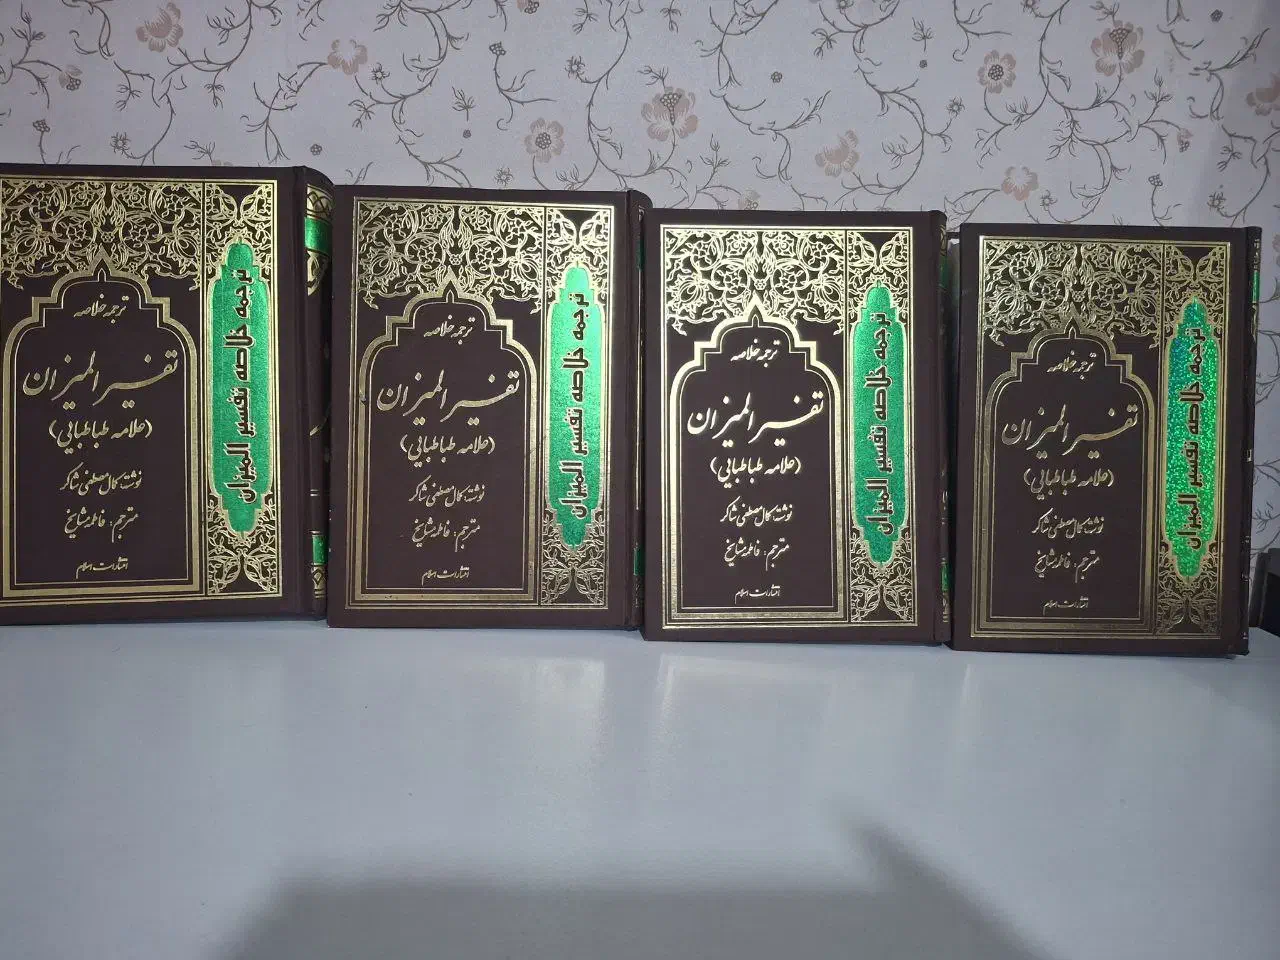 ترجمه خلاصه
تفسیر المیزان
(علامه طباطبایی)
نوشته: کمال مصطفی شاکر
مترجم: فاطمه مشایخ
انتشارات اسلام
ترجمه خلاصه تفسیر المیزان
ترجمه خلاصه
تفسیر المیزان
(علامه طباطبایی)
نوشته: کمال مصطفی شاکر
مترجم: فاطمه مشایخ
انتشارات اسلام
ترجمه خلاصه تفسیر المیزان
ترجمه خلاصه
تفسیر المیزان
(علامه طباطبایی)
نوشته: کمال مصطفی شاکر
مترجم: فاطمه مشایخ
انتشارات اسلام
ترجمه خلاصه تفسیر المیزان
ترجمه خلاصه
تفسیر المیزان
(علامه طباطبایی)
نوشته: کمال مصطفی شاکر
مترجم: فاطمه مشایخ
انتشارات اسلام
ترجمه خلاصه تفسیر المیزان